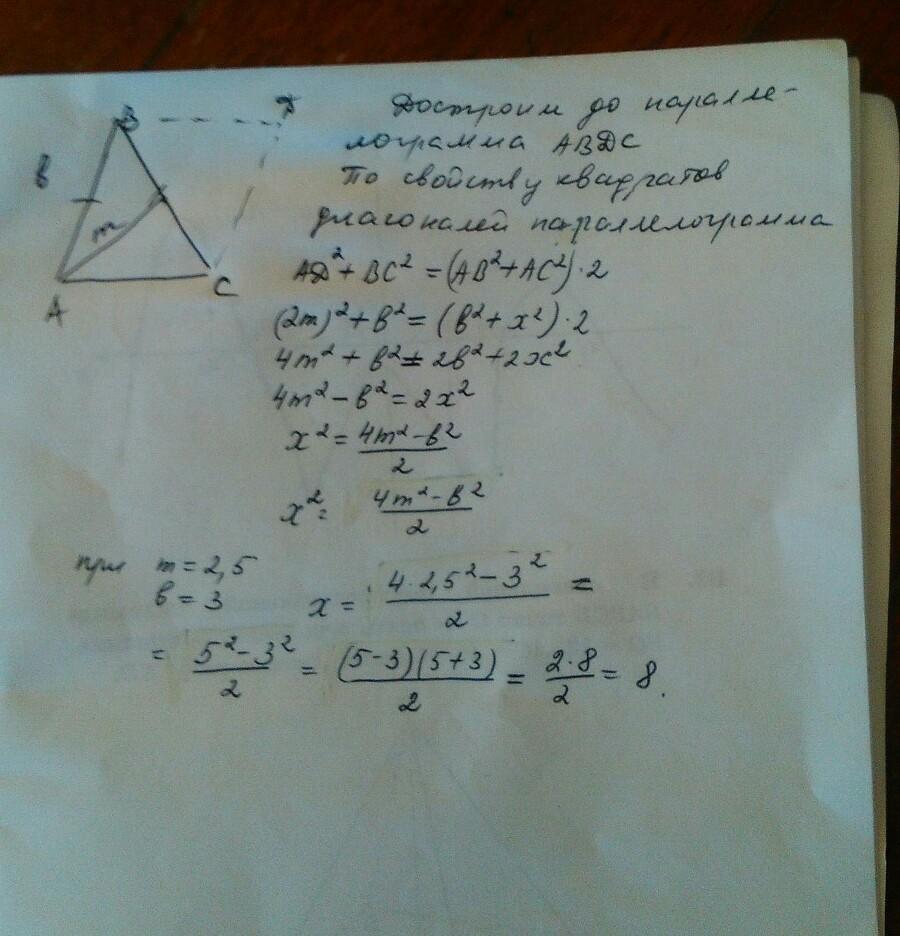 B
D
в
m
A
C
Достроим до паралле-
лограмма ABDC
По свойству квадратов
диагоналей параллелограмма
AD² + BC² = (AB² + AC²)·2
(2m)² + в² = (в² + x²)·2
4m² + в² = 2в² + 2x²
4m² - в² = 2x²
x² = (4m² - в²)/2
x² = (4m² - в²)/2
при m = 2,5
в = 3
x = (4·2,5² - 3²)/2 =
= (5² - 3²)/2 = ((5-3)(5+3))/2 = (2·8)/2 = 8.